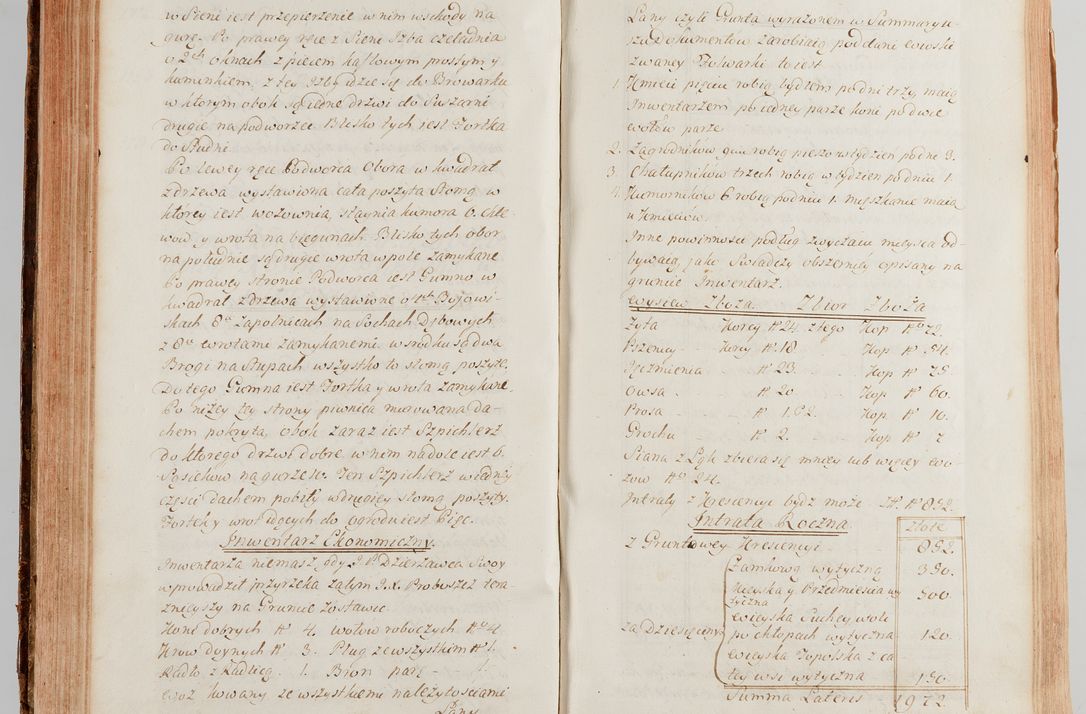 w Sieni iest przepierzenie w nim wschody na
gurę. Po prawey ręce z Sieni Izba czeladnia
o 2ch oknach z piecem kaflowym prostym y
kuminkiem, z tey Izby idzie się do Browarku
w ktorym obok są iedne drzwi do Suszarni
drugie na podworzec. Blisko tych iest Fortka
do Studni.
Po lewey ręce Podworca Obora w kwadrat
z drzewa wystawiona cała poszyta Słomą, w
ktorey iest wozownia, staynia kumora 6. Chle-
wow, y wrota na biegunach. Blisko tych obor
na południe są drugie wrota w pole zamykane
Po prawey stronie Podworca iest Gumno w
kwadrat z drzewa wystawione o 4ch Bojowi-
skach 8u Zapolnicach na Sochach Dębowych
z 8u wrotami zamykanemi. w srodku są dwa
Brogi na Słupach wszystko to słomą poszyte.
Do tego Gumna iest Fortka y wrota zamykane
Po niżey tey strony piwnica murowana da-
chem pokryta, obok zaraz iest Szpichlerz
do ktorego drzwi dobre w nim na dole iest 6.
Sąsiekow na gurze 10. Ten Szpichlerz w iedney
częsci dachem pobity w drugiey słomą poszyty.
Fortek y wrot idących do ogrodu iest Pięć.
Inwentarz Ekonomiczny.
Inwentarza niemasz, gdy J. P. Dzierżawca Swoy
wprowadził przyrzeka zatym J.X. Proboszcz tera-
znieyszy na Gruncie zostawić
Koni dobrych Nº 4. wołow roboczych Nro 4
Krow doynych Nº 3. Pług ze wszystkiem Nº 1.
Radło z Radlicą 1. Bron parę 1.
woz kowany ze wszystkiemi należytosciami
Łany
Łany czyli Grunta wyrażonem w Summaryu-
szu Dokumentow zarobiaią poddani wioski
zwaney Folwarki to iest
1. Kmieci pięciu robią bydłem po dni trzy, maią
Inwentarzem po iedney parze koni po dwie
wołow parze
2. Zagrodnikow robią pieszo w tydzien po dni 3.
3. Chałupnikow trzech robią w tydzien po dniu 1.
4. Kumornikow 6 robią po dniu 1. mięszkanie maią
u Kmieciow.
Inne powinnosci podług zwyczaiu mieysca od-
bywaią, jako Swiadczy obszerniey opisany na
gruncie Inwentarz.
Wysiew Zboża. Zbior Zboża
Zyta Korcy Nº 24. złego Kop Nro 72.
Pszenicy Korcy Nº 18. Kop Nº 54.
Jęczmienia Nº 23. Kop Nº 75
Owsa Nº 20 Kop Nº 60.
Prosa Nº 1.½. Kop Nº 10.
Grochu Nº 2. Kop Nº 7
Siana z Łąk zbiera się mniey lub więcey wo-
zow Nro 24.
Intraty z Kresencyi bydz może Zł. Nº 892.
Intrata Roczna. złote
z Gruntowey Kresencyi 892.
za Dziesięciny
Zamkową wytyczną 390.
Mieyska y Przedmiescia wy-
tyczna 500.
wieyska Suchey woli
po chłopach wytyczna 120.
wieyska Topolska z ca-
łey wsi wytyczna 150.
Summa Lateris 1972.